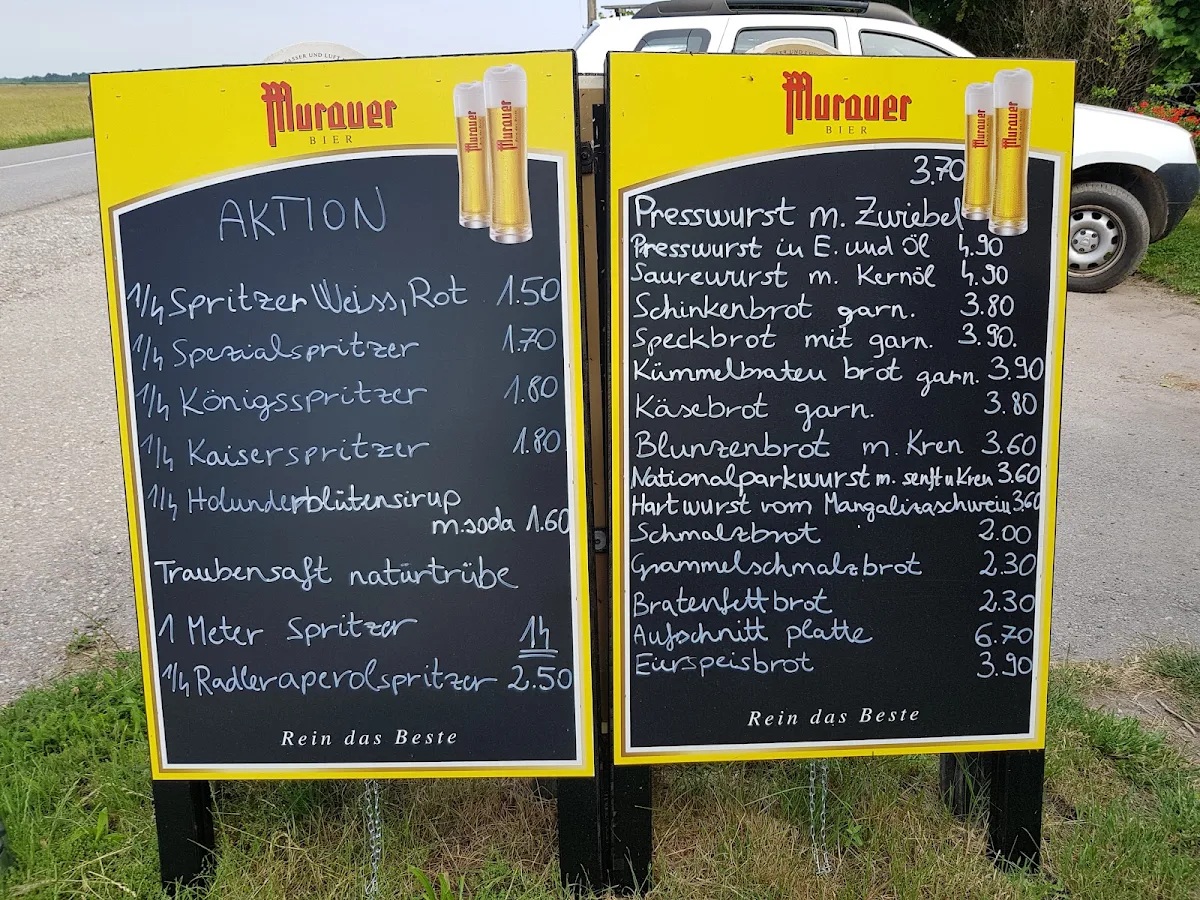 Murauer
BIER
AKTION
1/4 Spritzer Weiss, Rot 1.50
1/4 Spezialspritzer 1.70
1/4 Königsspritzer 1.80
1/4 Kaiserspritzer 1.80
1/4 Holunderblütensirup
m.soda 1.60
Traubensaft natürtrübe
1 Meter Spritzer 14
1/4 Radleraperolspritzer 2.50
Rein das Beste
Murauer
BIER
3.70
Presswurst m. Zwiebel
Presswurst in E. und Öl 4.90
Saurewurst m. Kernöl 4.90
Schinkenbrot garn. 3.80
Speckbrot mit garn. 3.90.
Kümmelbraten brot garn. 3.90
Käsebrot garn. 3.80
Blunzenbrot m. Kren 3.60
Nationalparkwurst m. senft u Kren 3.60
Hartwurst vom Mangalizaschwein 3.60
Schmalzbrot 2.00
Grammelschmalzbrot 2.30
Bratenfettbrot 2.30
Aufschnitt platte 6.70
Eierspeisbrot 3.90
Rein das Beste